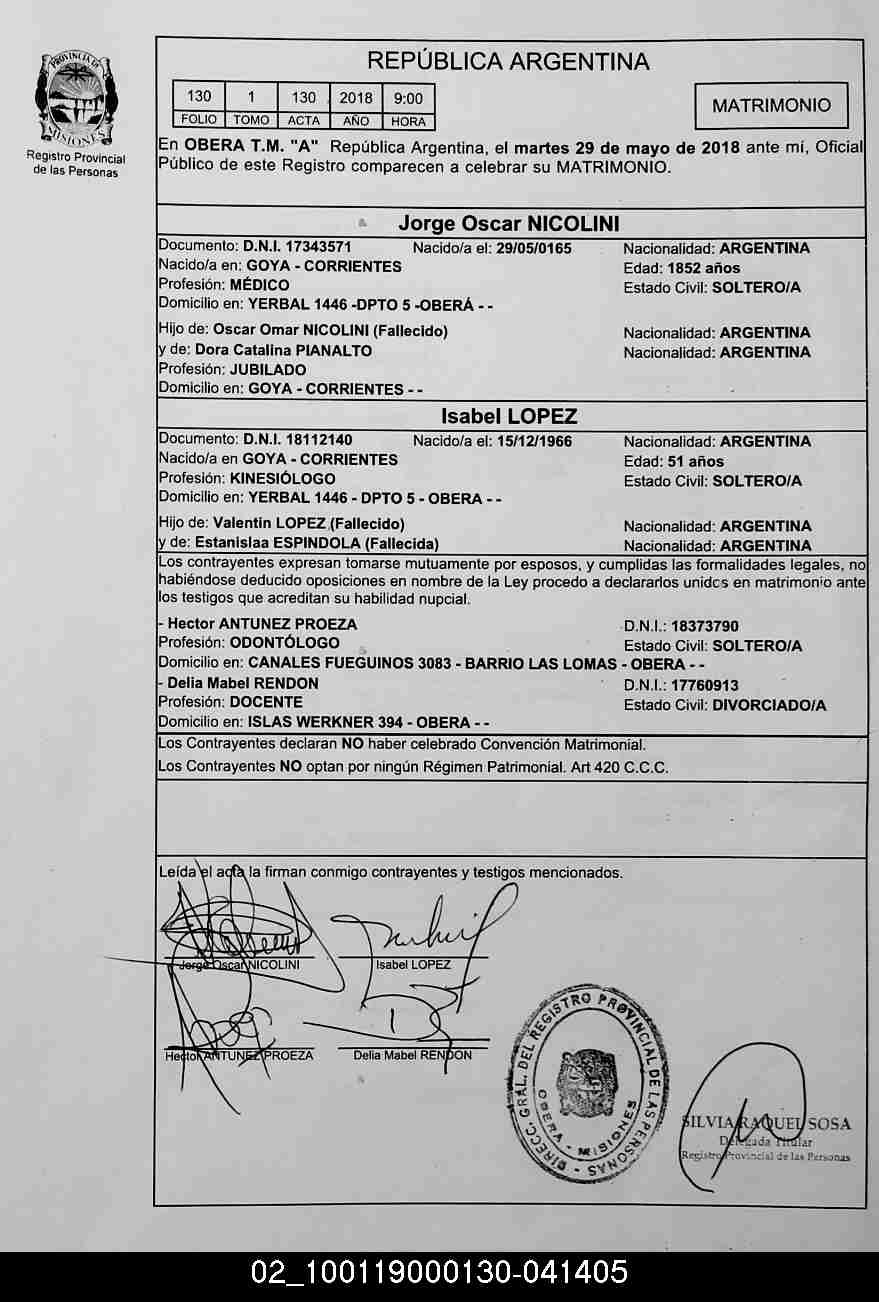 REPÚBLICA ARGENTINA
130 1 130 2018 9:00
FOLIO TOMO ACTA AÑO HORA
MATRIMONIO
PROVINCIA DE
MISIONES
Registro Provincial
de las Personas
En OBERA T.M. "A" República Argentina, el martes 29 de mayo de 2018 ante mí, Oficial
Público de este Registro comparecen a celebrar su MATRIMONIO.
Jorge Oscar NICOLINI
Documento: D.N.I. 17343571 Nacido/a el: 29/05/0165 Nacionalidad: ARGENTINA
Nacido/a en: GOYA - CORRIENTES Edad: 1852 años
Profesión: MÉDICO Estado Civil: SOLTERO/A
Domicilio en: YERBAL 1446 -DPTO 5 -OBERÁ - -
Hijo de: Oscar Omar NICOLINI (Fallecido) Nacionalidad: ARGENTINA
y de: Dora Catalina PIANALTO Nacionalidad: ARGENTINA
Profesión: JUBILADO
Domicilio en: GOYA - CORRIENTES - -
Isabel LOPEZ
Documento: D.N.I. 18112140 Nacido/a el: 15/12/1966 Nacionalidad: ARGENTINA
Nacido/a en GOYA - CORRIENTES Edad: 51 años
Profesión: KINESIÓLOGO Estado Civil: SOLTERO/A
Domicilio en: YERBAL 1446 - DPTO 5 - OBERA - -
Hijo de: Valentin LOPEZ (Fallecido) Nacionalidad: ARGENTINA
y de: Estanislaa ESPINDOLA (Fallecida) Nacionalidad: ARGENTINA
Los contrayentes expresan tomarse mutuamente por esposos, y cumplidas las formalidades legales, no
habiéndose deducido oposiciones en nombre de la Ley procedo a declararlos unidos en matrimonio ante
los testigos que acreditan su habilidad nupcial.
- Hector ANTUNEZ PROEZA D.N.I.: 18373790
Profesión: ODONTÓLOGO Estado Civil: SOLTERO/A
Domicilio en: CANALES FUEGUINOS 3083 - BARRIO LAS LOMAS - OBERA - -
- Delia Mabel RENDON D.N.I.: 17760913
Profesión: DOCENTE Estado Civil: DIVORCIADO/A
Domicilio en: ISLAS WERKNER 394 - OBERA - -
Los Contrayentes declaran NO haber celebrado Convención Matrimonial.
Los Contrayentes NO optan por ningún Régimen Patrimonial. Art 420 C.C.C.
Leída el acta la firman conmigo contrayentes y testigos mencionados.
Jorge Oscar NICOLINI Isabel LOPEZ
Hector ANTUNEZ PROEZA Delia Mabel RENDON
DIRECC. GRAL. DEL REGISTRO PROVINCIAL DE LAS PERSONAS
OBERA - MISIONES
SILVIA RAQUEL SOSA
Delegada Titular
Registro Provincial de las Personas
02_100119000130-041405